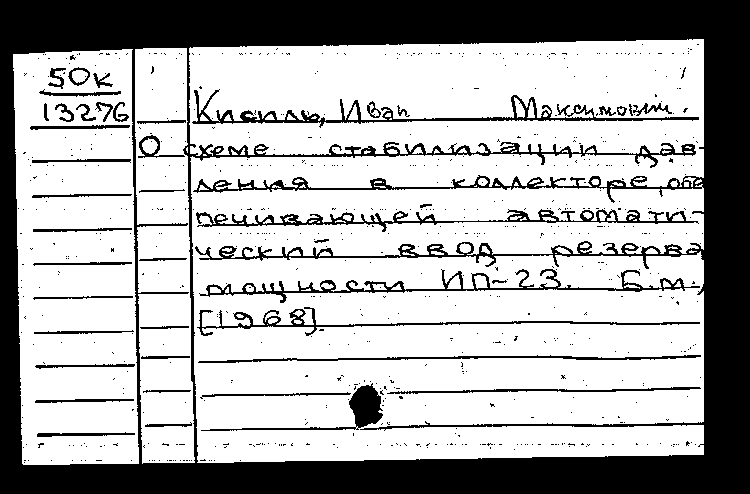 50к
13276
Кисиль, Иван Максимович.
О схеме стабилизации дав-
ления в коллекторе, обе
печивающей автомати-
ческий ввод резерва
мощности ИП-23. Б.м.,
[1968].